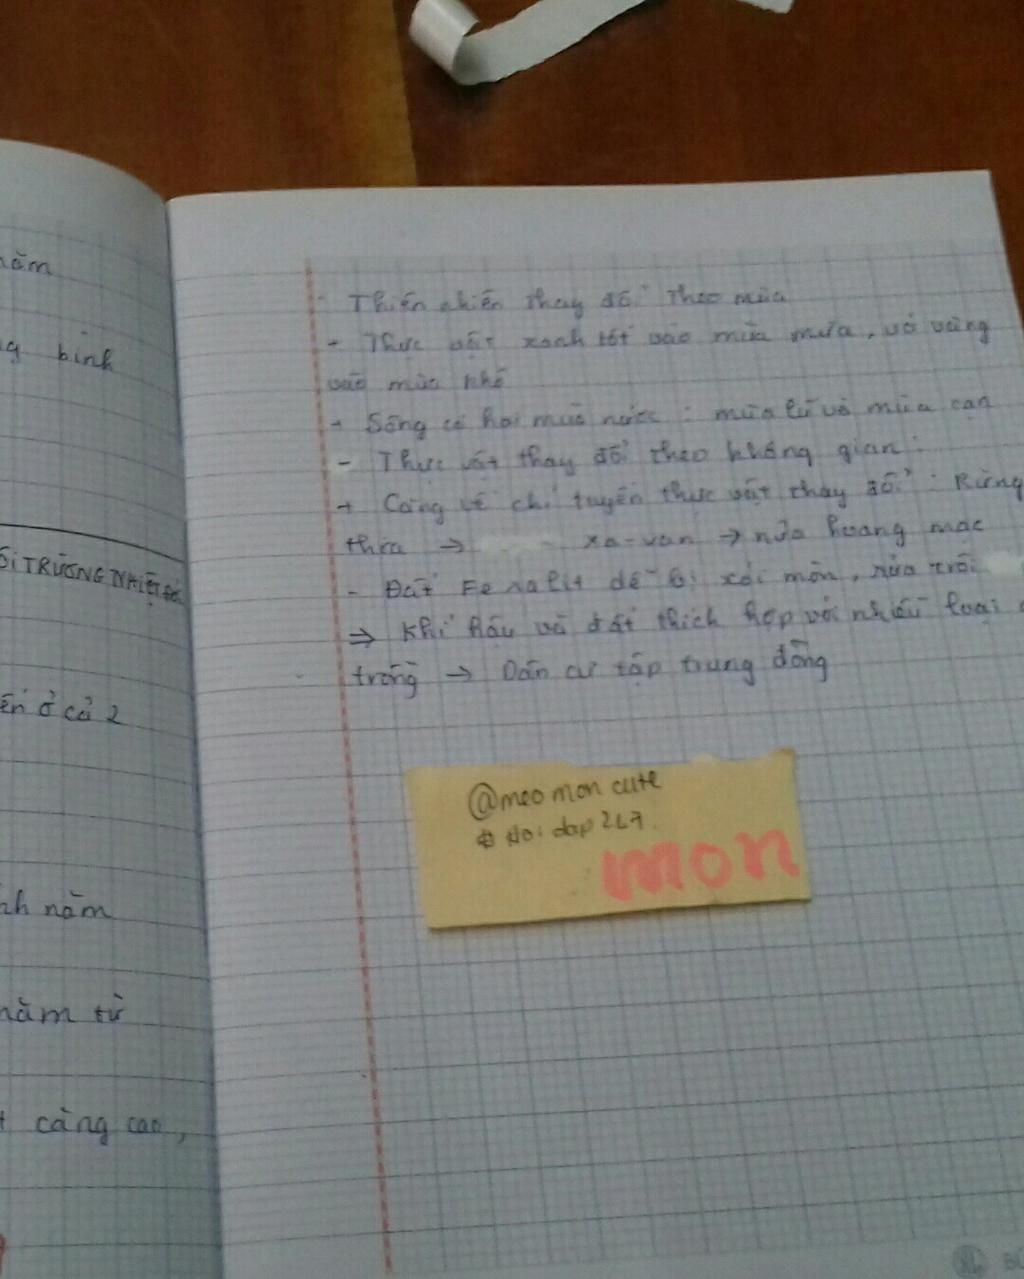 năm
bình
ÔI TRƯỜNG NHIỆT ĐỚI
ến ở cả 2
nh năm
năm từ
càng cao,
- Thiên nhiên thay đổi theo mùa
+ Thực vật xanh tốt vào mùa mưa, và vàng
vào mùa khô
+ Sông có hai mùa nước : mùa lũ và mùa cạn
- Thực vật thay đổi theo không gian :
+ Càng về chí tuyến thực vật thay đổi : Rừng
thưa → xa-van → nửa hoang mạc
- Đất Feralit dễ bị xói mòn, rửa trôi
⇒ Khí hậu và đất thích hợp với nhiều loại
trồng → Dân cư tập trung đông
@meo mon cute
# Hoi dap 247
mon